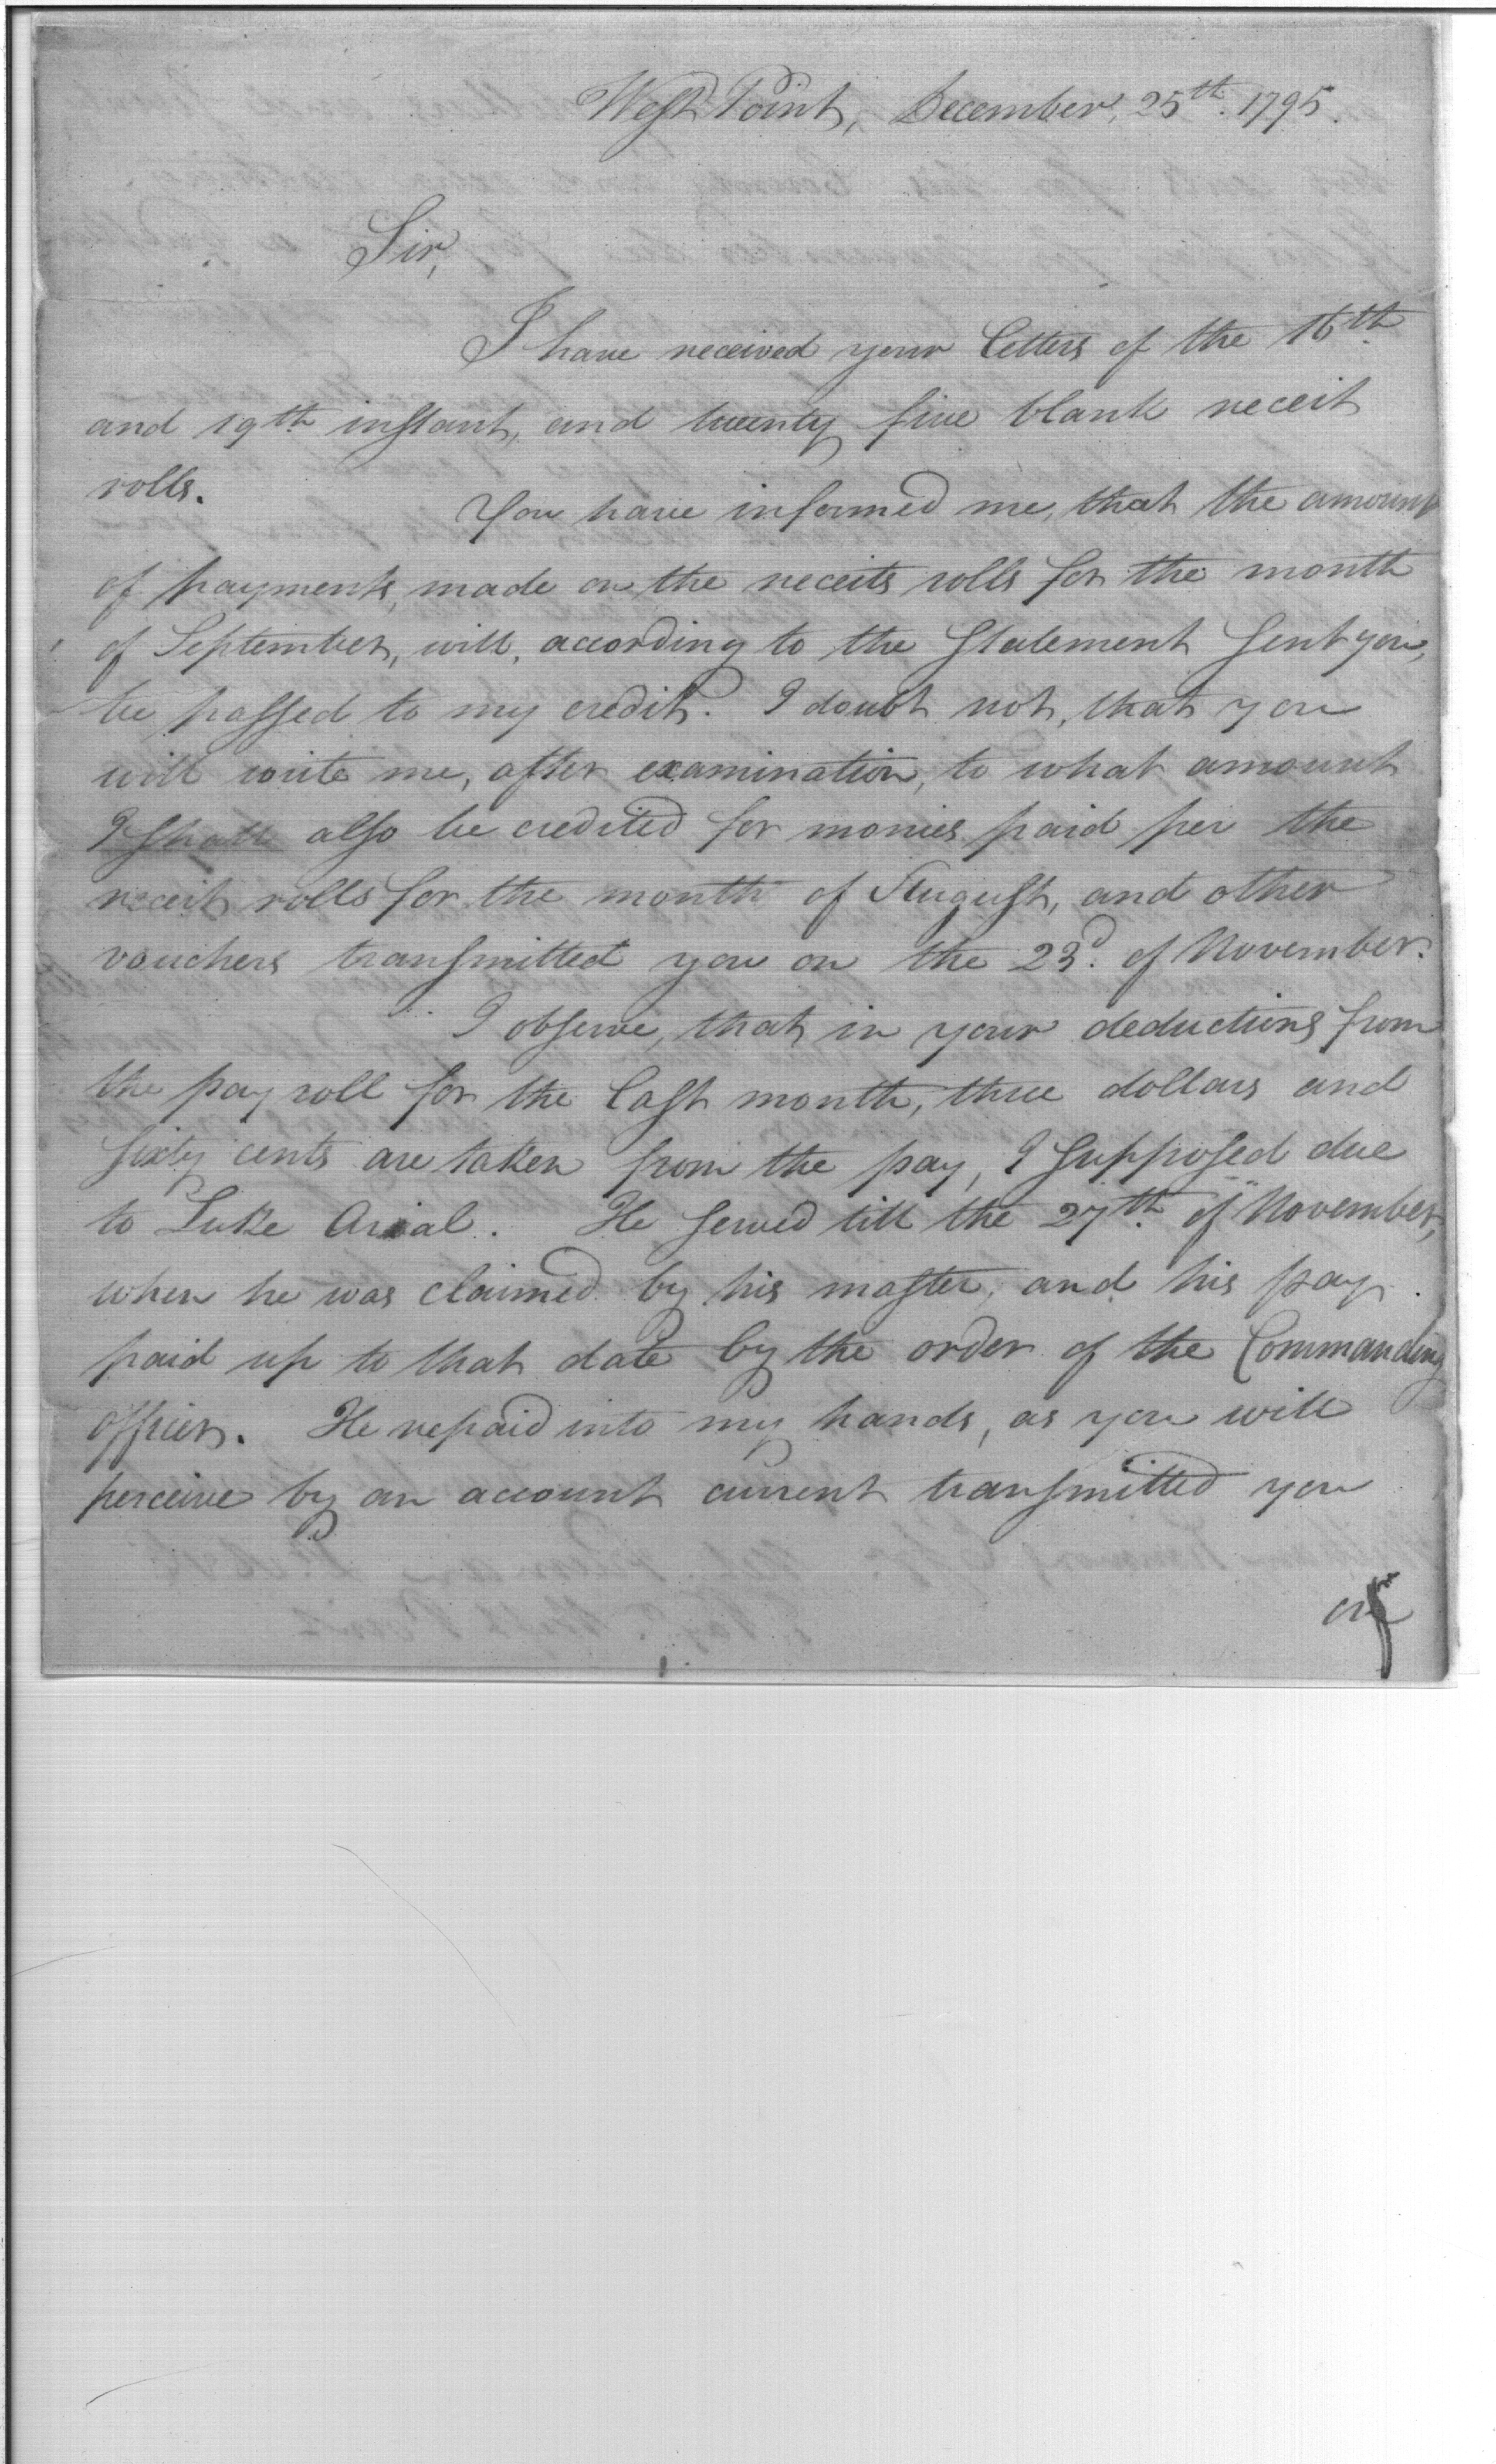 West Point, December, 25th. 1795.
Sir,
I have received your letters of the 16th
and 19th instant, and twenty five blank receit
rolls.
You have informed me, that the amount
of payments, made on the receits rolls for the month
of September, will, according to the statement sent you,
be passed to my credit. I doubt not, that you
will write me, after examination, to what amount
I shall also be credited for monies paid per the
receit rolls for the month of August, and other
vouchers transmitted you on the 23d. of November.
I observe, that in your deductions from
the pay roll for the last month, three dollars and
sixty cents are taken from the pay, I supposed due
to Luke Arial. He served till the 27th. of November,
when he was claimed by his master, and his pay
paid up to that date by the order of the Commanding
officer. He repaid into my hands, as you will
perceive by an account current transmitted you